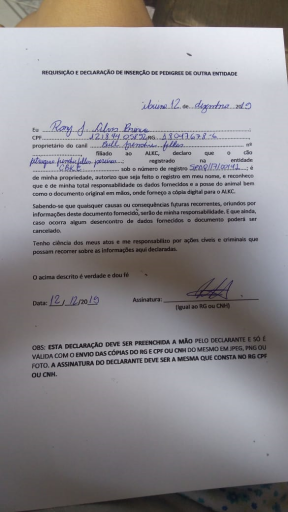 REQUISIÇÃO E DECLARAÇÃO DE INSERÇÃO DE PEDIGREE DE OUTRA ENTIDADE
12 de dezembro 2019
Eu Rony J.
CPF RG
proprietário do canil Bull nº
, filiado ao ALKC, declaro que o cão
registrado na entidade
CBKC sob o número de registro ; é
de minha propriedade, autorizo que seja feito o registro em meu nome, e reconheço
que é de minha total responsabilidade os dados fornecidos e a posse do animal bem
como o documento original em mãos, onde forneço a cópia digital para o ALKC.
Sabendo-se que quaisquer causas ou consequências futuras recorrentes, oriundos por
informações deste documento fornecido, serão de minha responsabilidade. E que ainda,
caso ocorra algum desencontro de dados fornecidos o documento poderá ser
cancelado.
Tenho ciência dos meus atos e me responsabilizo por ações cíveis e criminais que
possam recorrer sobre as informações aqui declaradas.
O acima descrito é verdade e dou fé
Data: 12 / 12/2019 Assinatura:
(Igual ao RG ou CNH)
OBS: ESTA DECLARAÇÃO DEVE SER PREENCHIDA A MÃO PELO DECLARANTE E SÓ É
VALIDA COM O ENVIO DAS CÓPIAS DO RG E CPF OU CNH DO MESMO EM JPEG, PNG OU
FOTO. A ASSINATURA DO DECLARANTE DEVE SER A MESMA QUE CONSTA NO RG CPF
OU CNH.